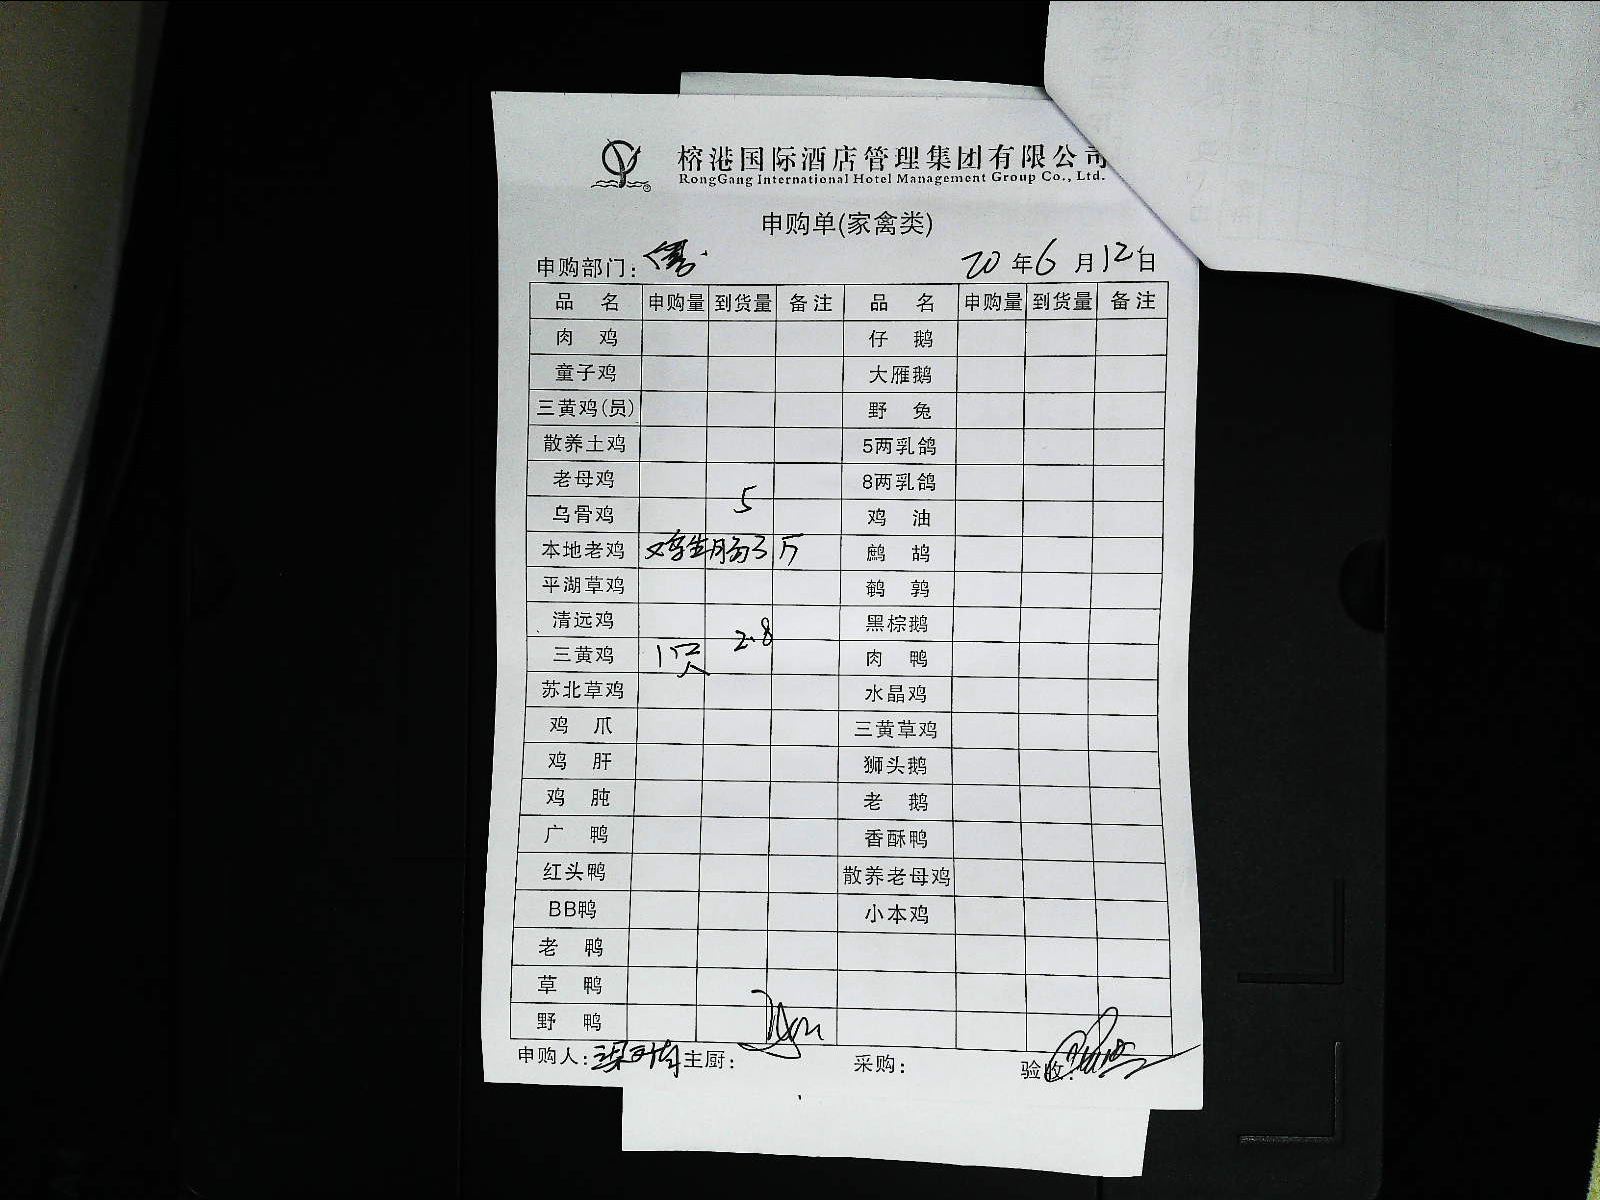 榕港国际酒店管理集团有限公司
RongGang International Hotel Management Group Co., Ltd.
申购单(家禽类)
申购部门： 20 年 6 月 12 日
品 名 申购量 到货量 备注 品 名 申购量 到货量 备注
肉 鸡 仔 鹅
童子鸡 大雁鹅
三黄鸡(员) 野 兔
散养土鸡 5两乳鸽
老母鸡 8两乳鸽
乌骨鸡 5 鸡 油
本地老鸡 鸡生肠3斤 鹧 鸪
平湖草鸡 鹌 鹑
清远鸡 黑棕鹅
三黄鸡 1只 2.8 肉 鸭
苏北草鸡 水晶鸡
鸡 爪 三黄草鸡
鸡 肝 狮头鹅
鸡 肫 老 鹅
广 鸭 香酥鸭
红头鸭 散养老母鸡
BB鸭 小本鸡
老 鸭
草 鸭
野 鸭
申购人： 主厨： 采购： 验收：